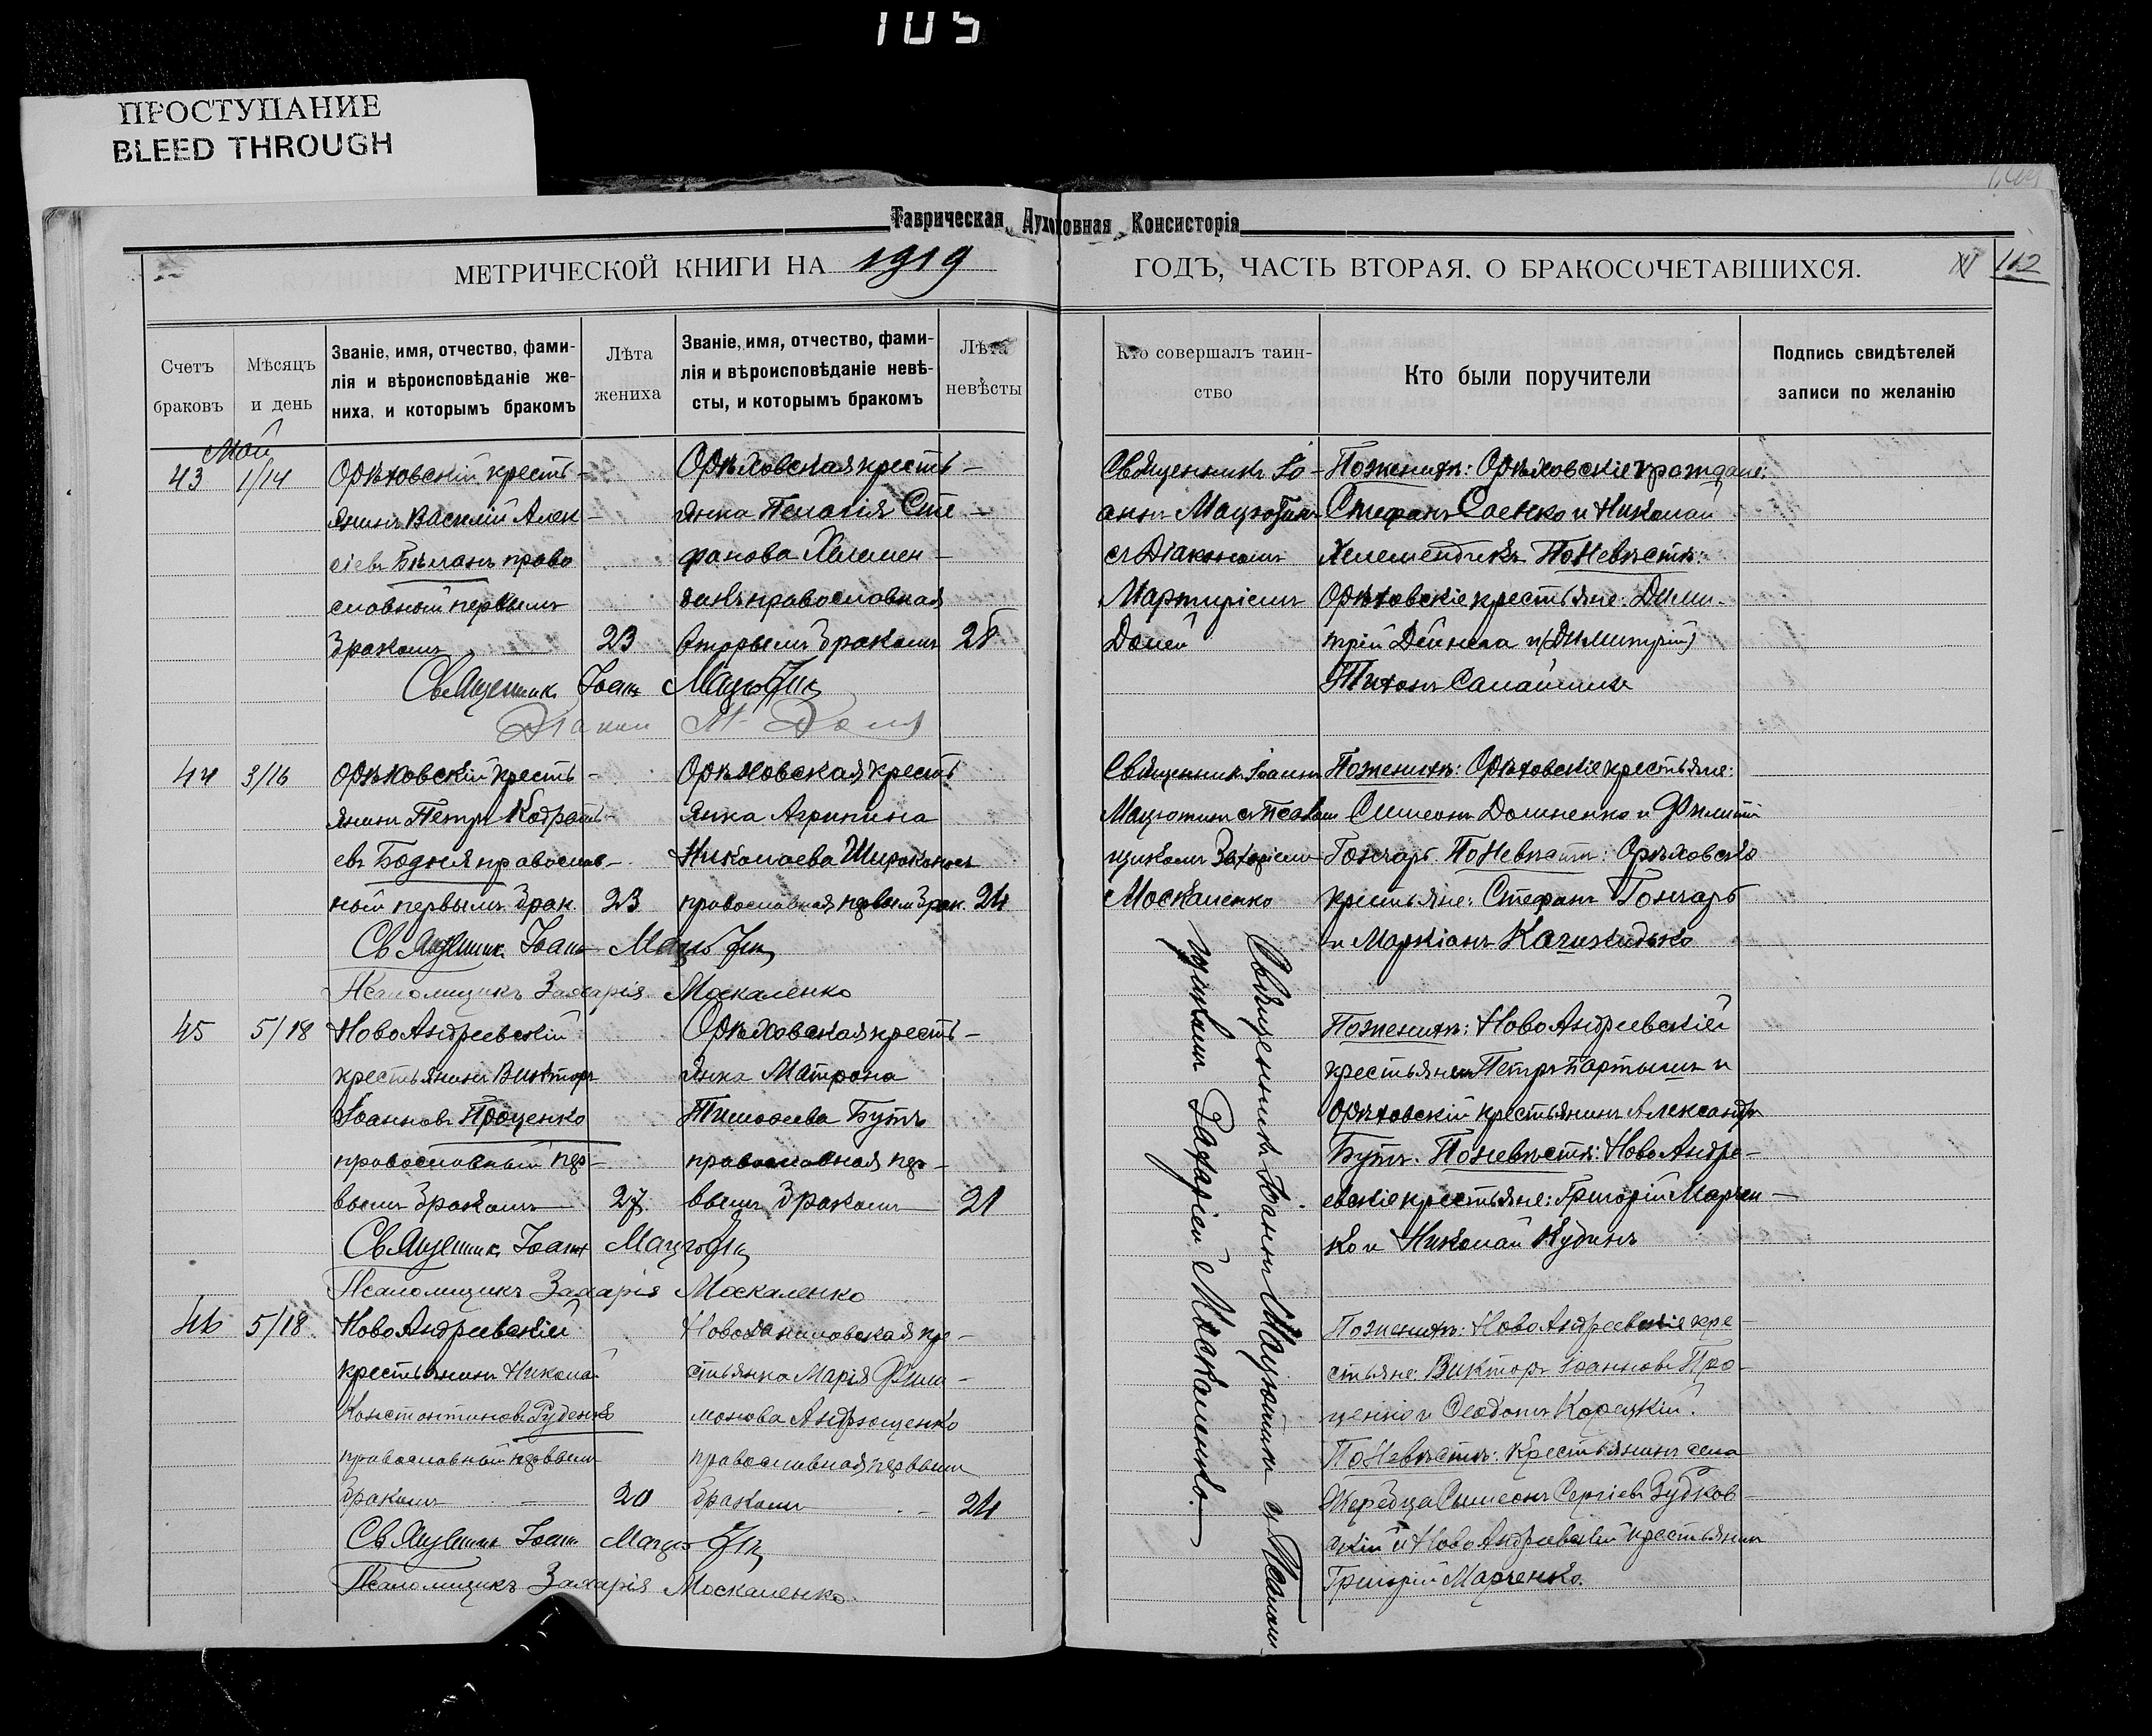 105
ПРОСТУПАНИЕ
BLEED THROUGH
Таврическая Духовная Консисторія
МЕТРИЧЕСКОЙ КНИГИ НА 1919
ГОДЪ, ЧАСТЬ ВТОРАЯ, О БРАКОСОЧЕТАВШИХСЯ.
112
Счетъ браковъ
Мѣсяцъ и день
Званіе, имя, отчество, фами-
лія и вѣроисповѣданіе же-
ниха, и которымъ бракомъ
Лѣта жениха
Званіе, имя, отчество, фами-
лія и вѣроисповѣданіе невѣ-
сты, и которымъ бракомъ
Лѣта невѣсты
Кто совершалъ таин-
ство
Кто были поручители
Подпись свидѣтелей
записи по желанію
Май
43 1/14
Орѣховскій кресть-
янинъ Василій Алек-
сіевъ Бѣланъ право
славный первымъ
бракомъ 23
Орѣховская кресть-
янка Пелагія Сте-
фанова Хелемен-
православная
вторымъ бракомъ
Священникъ Іо-
аннъ Мацютинъ
съ Діакономъ
Мартиріемъ
Долей
По женихѣ: Орѣховскіе граждане:
Стефанъ Саенко и Николай
Хелемендикъ По Невѣстѣ:
Орѣховскіе крестьяне: Дими-
трій Дейнега и (Димитрій)
Титонъ
Священникъ Іоаннъ Мацютинъ
Діаконъ М. Доля
44 3/16
Орѣховскій кресть-
янинъ Петръ Кодрать-
евъ Бодня православ-
ный первымъ брак. 23
Орѣховская кресть
янка Агрипина
Николаева
православная первым брак. 24
Священник Іоаннъ
Мацютинъ съ Псалом
щикомъ Захаріемъ
Москаленко
По женихѣ: Орѣховскіе крестьяне:
Симеонъ Долиненко и Филиппъ
Гончаръ. По Невѣстѣ: Орѣховскіе
крестьяне: Стефанъ Гончаръ
и Маркіанъ
Священник Іоаннъ Мацютинъ
Псаломщикъ Захарія Москаленко
45 5/18
Ново Андреевскій
крестьянинъ Викторъ
Іоанновъ Проценко
православный пер-
вымъ бракомъ 27
Орѣховская кресть-
янка Матрона
Тимоѳеева Бутъ
православная пер-
вымъ бракомъ 21
Священникъ Іоаннъ Мацютинъ съ Псалом-
щикомъ Захаріемъ Москаленко.
По женихѣ: Ново Андреевскій
крестьянинъ Петръ Партышъ и
Орѣховскій крестьянинъ Александръ
Бутъ. По невѣстѣ: Ново Андре-
евскіе крестьяне: Григорій Марчен-
ко и Николай Кудинъ
Священник Іоаннъ Мацютинъ
Псаломщикъ Захарія Москаленко
46 5/18
Ново Андреевскій
крестьянинъ Николай
Константиновъ Руденко
православный первымъ
бракомъ 20
Новоданиловская кре-
стьянка Марія Фили-
монова Андрющенко
православная первымъ
бракомъ 24
По женихѣ: Ново Андреевскіе кре-
стьяне: Викторъ Іоанновъ Про-
ценко и Ѳеодотъ Корецкій.
По Невѣстѣ: Крестьянинъ села
Жеребца Симеонъ Сергіевъ Зубков-
скій и Ново Андреевскій крестьянинъ
Григорій Марченко.
Священник Іоаннъ Мацютинъ
Псаломщикъ Захарія Москаленко.